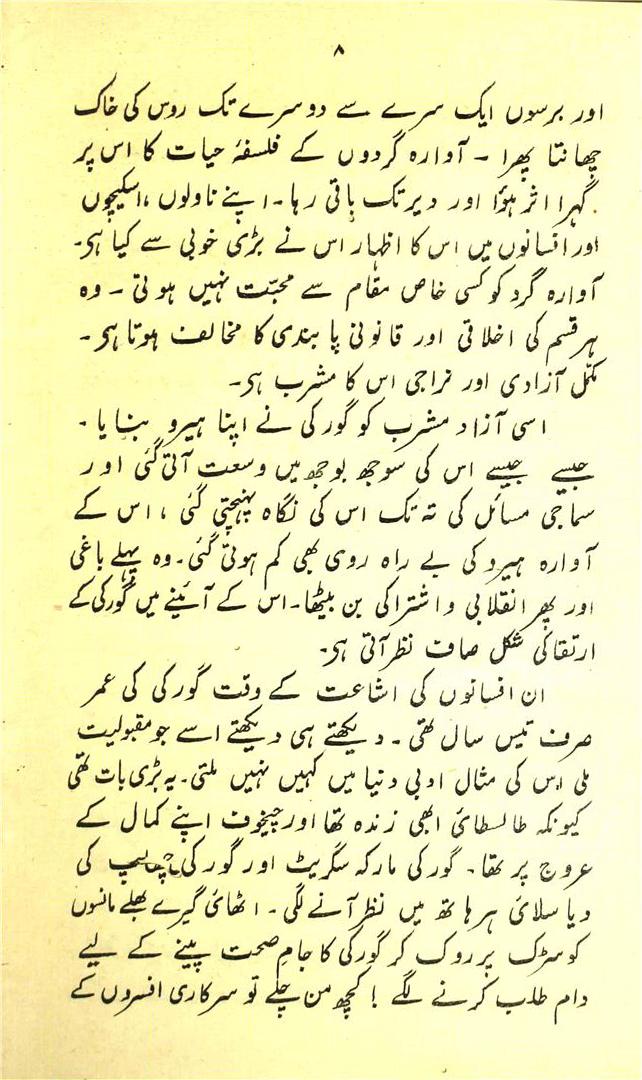 ۸
اور برسوں ایک سرے سے دوسرے تک روس کی خاک
چھانتا پھرا ۔ آوارہ گردوں کے فلسفۂ حیات کا اس پر
گہرا اثر ہؤا اور دیر تک باقی رہا۔ اپنے ناولوں ، اسکیچوں
اور افسانوں میں اس کا اظہار اس نے بڑی خوبی سے کیا ہی۔
آوارہ گرد کو کسی خاص مقام سے محبّت نہیں ہوتی ۔ وہ
ہر قسم کی اخلاقی اور قانونی پابندی کا مخالف ہوتا ہی ۔
مکمّل آزادی اور نراجی اس کا مشرب ہی۔
اسی آزاد مشرب کو گورکی نے اپنا ہیرو بنایا ۔
جیسے جیسے اس کی سوجھ بوجھ میں وسعت آتی گئی اور
سماجی مسائل کی تہ تک اس کی نگاہ پہنچتی گئی ، اس کے
آوارہ ہیرو کی بے راہ روی بھی کم ہوتی گئی۔ وہ پہلے باغی
اور پھر انقلابی و اشتراکی بن بیٹھا۔ اس کے آئینے میں گورکی کے
ارتقا کی شکل صاف نظر آتی ہی۔
ان افسانوں کی اشاعت کے وقت گورکی کی عمر
صرف تیس سال تھی ۔ دیکھتے ہی دیکھتے اسے جو مقبولیت
ملی اس کی مثال ادبی دنیا میں کہیں نہیں ملتی۔ یہ بڑی بات تھی
کیونکہ طالسطائ ابھی زندہ تھا اور چیخوف اپنے کمال کے
عروج پر تھا۔ گورکی مارکہ سگریٹ اور گورکی چھاپ کی
دیا سلائ ہر ہاتھ میں نظر آنے لگی ۔ اٹھائ گیرے بھلے مانسوں
کو سڑک پر روک کر گورکی کا جامِ صحت پینے کے لیے
دام طلب کرنے لگے ! کچھ من چلے تو سرکاری افسروں کے